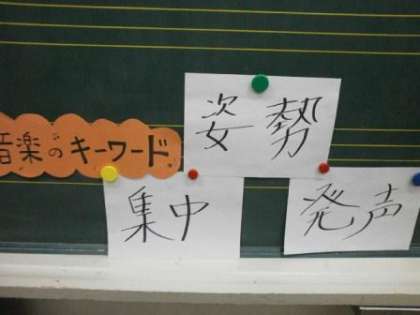 音楽のキーワード
姿勢
集中
発声